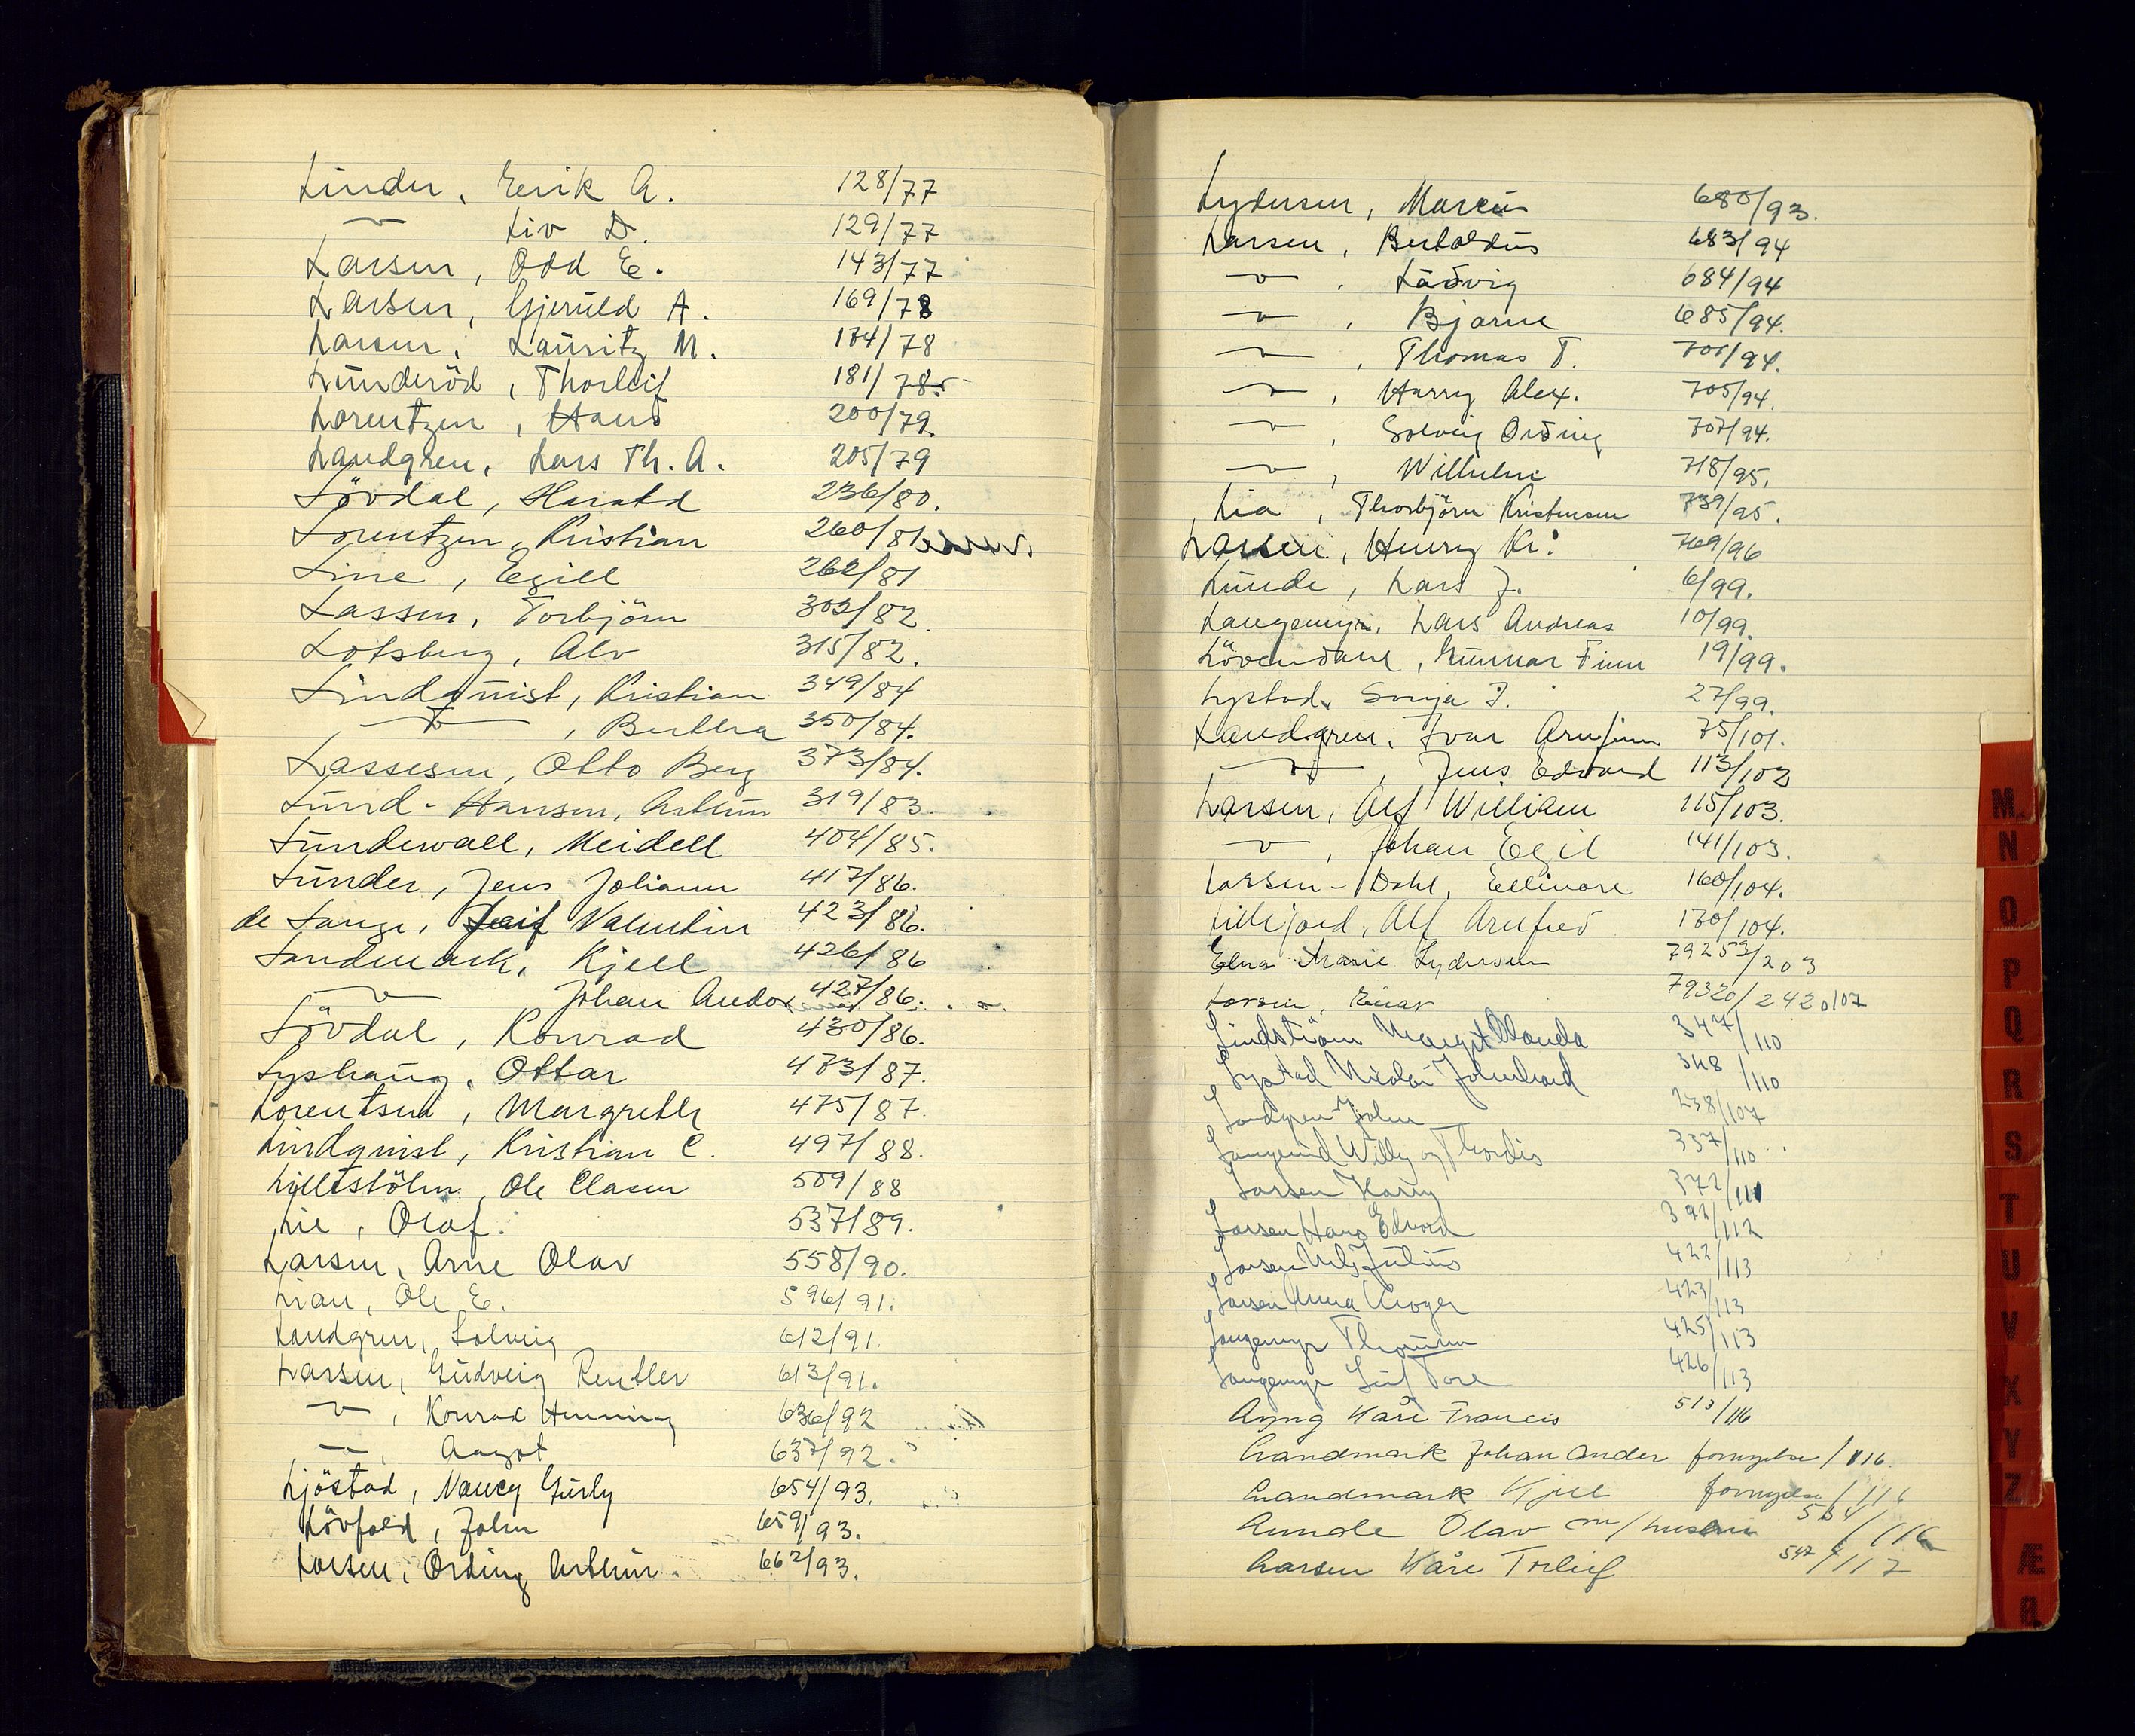 Linder, Erik A. 128/77
—"— Liv D. 129/77
Larsen, Odd E. 143/77
Larsen, Gjeruld A. 169/78
Larsen, Lauritz M. 174/78
Lunderöd, Thorleif 181/78
Lorentzen, Hans 200/79.
Landgren, Lars Th. A. 205/79
Lövdal, Harald 236/80.
Lorentzen, Kristian 260/81
Line, Egill 262/81
Lassen, Torbjörn 303/82
Lotsberg, Alv 315/82.
Lindquist, Kristian 349/84
—"—, Bertha 350/84.
Lassesen, Otto Berg 373/84.
Lund-Hansen, Arthur 319/83.
Lundewall, Meidell 404/85.
Lunder, Jens Johann 417/86.
de Lange, Leif Valentin 423/86.
Landmark, Kjell 426/86
—"— Johan Andor 427/86.
Lövdal, Konrad 430/86.
Lyshaug, Ottar 473/87.
Lorentsen, Margrethe 475/87.
Lindquist, Kristian C. 497/88.
Lillestölen, Ole Clasen 509/88
Lie, Olaf. 537/89.
Larsen, Arne Olav 558/90.
Lian, Ole E. 596/91.
Landgren, Solveig 612/91.
Larsen, Gudveig Rentler 613/91.
—"—, Konrad Henning 636/92
—"—, Aagot 637/92.
Ljöstad, Nancy Gurly 654/93.
Lövfald, John 659/93.
Larsen, Ording Arthur. 662/93.
Lydersen, Marcus 680/93.
Larsen, Bertoldus 683/94
—"—, Ludvig 684/94
—"—, Bjarne 685/94.
—"—, Thomas T. 701/94.
—"—, Harry Alex. 705/94.
—"—, Solveig Ording 707/94.
—"—, Wilhelm 718/95.
Lia, Thorbjörn Kristensen 739/95.
Larsen, Henry Kr. 769/96
Lunde, Lars J. 6/99.
Langemyr, Lars Andreas 10/99.
Lövendane, Gunnar Finn 19/99.
Lystad, Sonja J. 27/99.
Landgren, Ivar Arnfinn 75/101.
—"—, Jens Edvard 113/102
Larsen, Alf William 115/103.
—"—, Johan Egil 141/103.
Larsen-Dahl, Ellinore 160/104.
Lillejord, Alf Arnfred 170/104.
Elna Marie Lydersen 79253/203
Larsen, Einar 79320/242 0107
Lindström Margit Wanda 347/110
Lystad Nicolai Johnhard 348/110
Landgren John 238/107
Langerud Willy og Thordis 337/110
Larsen Harry 372/111
Larsen Hans Edvard 392/112
Larsen Nils Julius 422/113
Larsen Anna Kroger 423/113
Langemyr Thorunn 425/113
Langemyr Leif Tore 426/113
Lyng Kåre Francis 513/116
Landmark Johan Andor fornyelse/116.
Landmark Kjell fornyelse/116
Lunde Olav m/hustru 564/116
Larsen Kåre Torleif 592/117
M.
N
O
P
Q
R
S
T
U
V
X
Y
Z
Æ